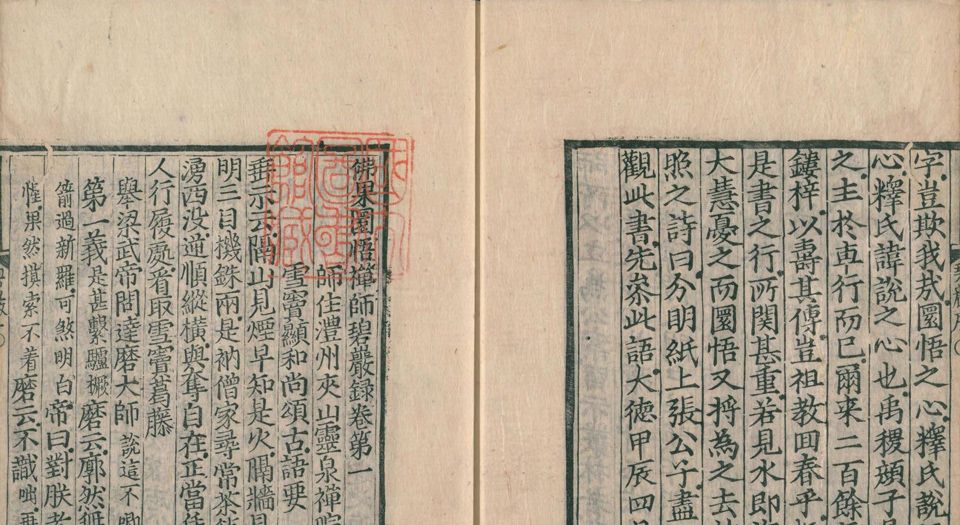 字豈欺我哉圜悟之心釋氏說
心釋氏諱說之心也禹稷顔子
之主於再行而已爾来二百餘
鏤梓以壽其傳豈祖教回春乎
是書之行所関甚重若見水即
大慧憂之而圜悟又将為之去
照之詩曰分明紙上張公子盡
觀此書先叅此語大徳甲辰四
佛果圜悟禪師碧巖録卷第一
師住澧州夾山靈泉禪院
雪竇顯和尚頌古語要
垂示云隔山見煙早知是火隔牆見
明三目機銖兩是衲僧家尋常茶
湧西没逆順縱橫與奪自在正當恁
人行履處看取雪竇葛藤
舉梁武帝問達磨大師說這不唧
第一義是甚繫驢橛磨云廓然無
箭過新羅可煞明白帝曰對朕者
惺果然摸索不着磨云不識咄再